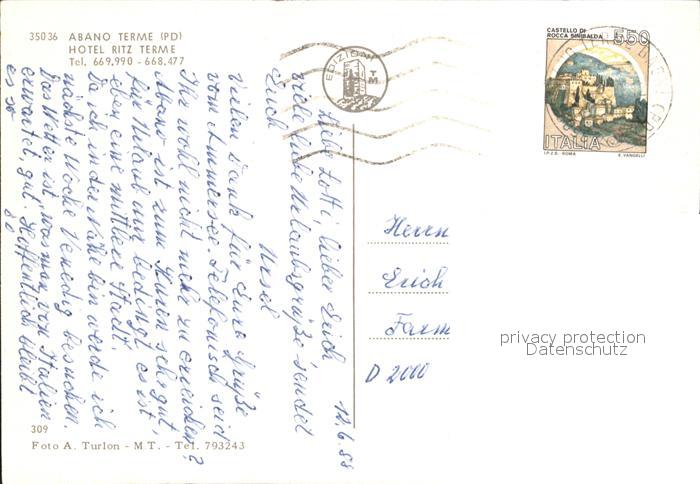 35036 ABANO TERME (PD)
HOTEL RITZ TERME
Tel. 669.990 - 668.477
EDIZIONI
T
M
CASTELLO DI
ROCCA SINIBALDA
550
ITALIA
I.P.Z.S. ROMA
E. VANGELLI
12.6.88
Liebe Lotti, lieber Erich
viele liebe Urlaubsgrüße sendet
Euch
Ursel
Vielen Dank für Eure Grüße
vom Ammersee. Telefonisch seid
Ihr wohl nicht mehr zu erreichen?
Abano ist zum Kuren sehr gut,
für Urlaub nur bedingt, es ist
eben eine mittlere Stadt.
Da ich in der Nähe bin werde ich
nächste Woche Venedig besuchen.
Das Wetter ist, was man von Italien
erwartet, gut. Hoffentlich bleibt
es so
Herrn
Erich
Farm
D 2000
privacy protection
Datenschutz
309
Foto A. Turlon - M.T. - Tel. 793243